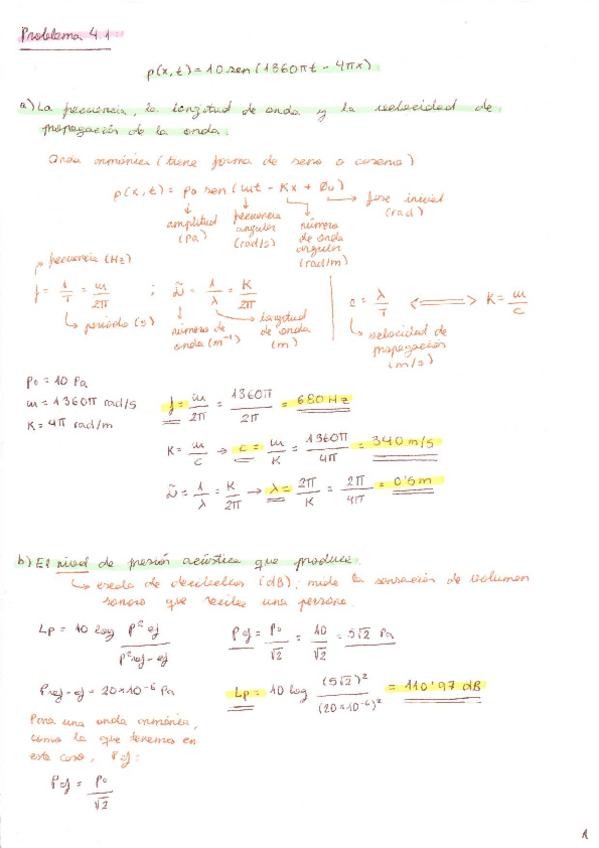 Problema 4.1
p(x,t) = 10 sen (1360πt - 4πx)
a) La frecuencia, la longitud de onda y la velocidad de
propagación de la onda.
Onda armónica (tiene forma de seno o coseno)
p(x,t) = p₀ sen (ωt - Kx + Ø₀)
amplitud (Pa)
frecuencia angular (rad/s)
número de onda angular (rad/m)
fase inicial (rad)
frecuencia (Hz)
f = 1/T = ω/2π ; ν̃ = 1/λ = K/2π
periodo (s)
número de onda (m⁻¹)
longitud de onda (m)
c = λ/T ⟺ K = ω/c
velocidad de propagación (m/s)
P₀ = 10 Pa
ω = 1360π rad/s
K = 4π rad/m
f = ω/2π = 1360π/2π = 680 Hz
K = ω/c → c = ω/K = 1360π/4π = 340 m/s
ν̃ = 1/λ = K/2π → λ = 2π/K = 2π/4π = 0'5m
b) El nivel de presión acústica que produce.
escala de decibelios (dB); mide la sensación de volumen
sonoro que recibe una persona.
Lp = 10 log P²ef / P²ref-ef
Pref-ef = 20×10⁻⁶ Pa
Para una onda armónica,
como la que tenemos en
este caso, Pef:
Pef = P₀/√2
Pef = P₀/√2 = 10/√2 = 5√2 Pa
Lp = 10 log (5√2)²/(20×10⁻⁶)² = 110'97 dB
1